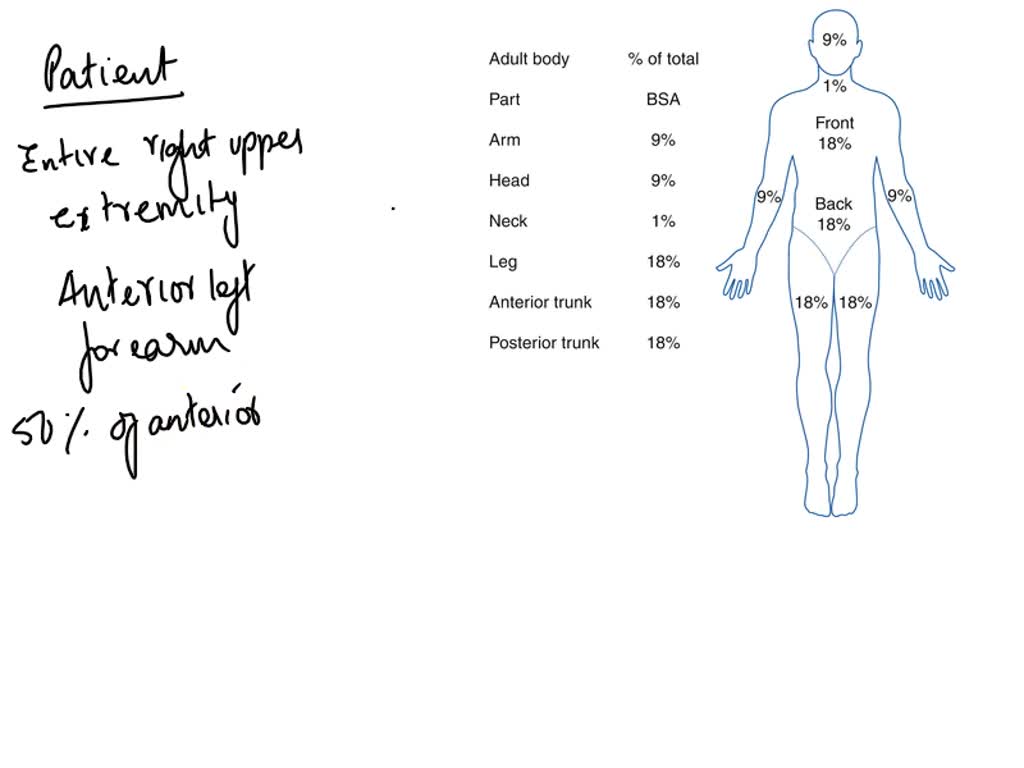 Patient
Entire right upper
extremity
Anterior left
forearm
50% of anterior
Adult body % of total
Part BSA
Arm 9%
Head 9%
Neck 1%
Leg 18%
Anterior trunk 18%
Posterior trunk 18%
9%
1%
Front
18%
9% 9%
Back
18%
18% 18%